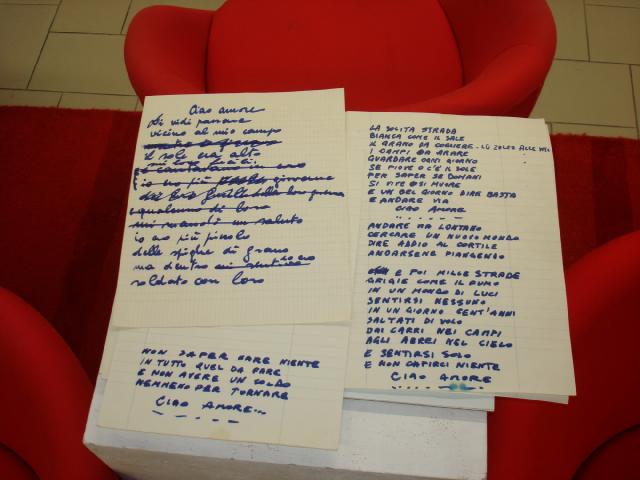 Ciao amore
Li vidi passare
vicino al mio campo
il sole era alto
io ero più giovane
qualcuno di loro
mi mandò un saluto
io ero più piccolo
delle spighe di grano
ma dentro ero
soldato con loro
NON SAPER FARE NIENTE
IN TUTTO QUEL DA FARE
E NON AVERE UN SOLDO
NEMMENO PER TORNARE
CIAO AMORE...
LA SOLITA STRADA
BIANCA COME IL SALE
IL GRANO DA COGLIERE
I CAMPI DA ARARE
GUARDARE OGNI GIORNO
SE PIOVE O C'È IL SOLE
PER SAPER SE DOMANI
SI VIVE O SI MUORE
E UN BEL GIORNO DIRE BASTA
E ANDARE VIA
CIAO AMORE
ANDARE VIA LONTANO
CERCARE UN NUOVO MONDO
DIRE ADDIO AL CORTILE
ANDARSENE PIANGENDO
E POI MILLE STRADE
GRIGIE COME IL FUMO
IN UN MONDO DI LUCI
SENTIRSI NESSUNO
IN UN GIORNO CENT'ANNI
SALTATI DI VOLO
DAI CARRI NEI CAMPI
AGLI AEREI NEL CIELO
E SENTIRSI SOLO
E NON CAPIRCI NIENTE
CIAO AMORE